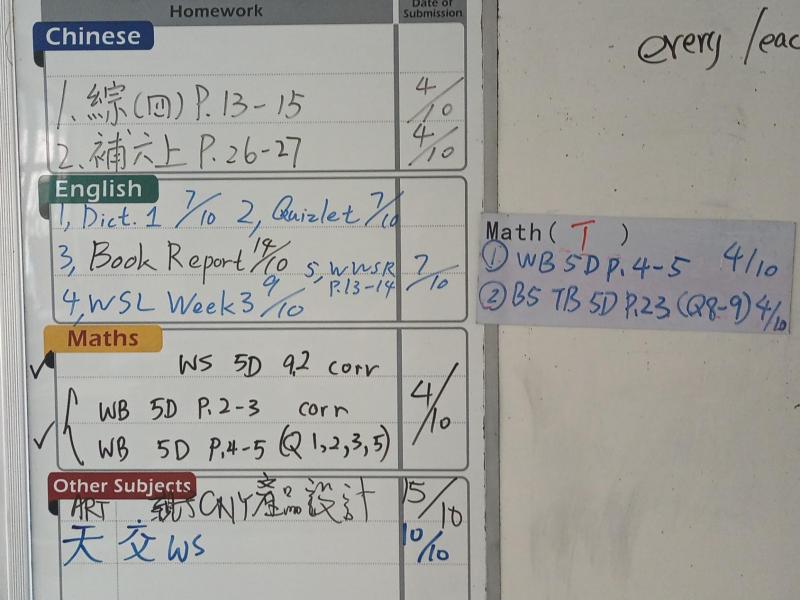 Homework
Date of Submission
Chinese
1. 綜(四) P.13-15 4/10
2. 補六上 P.26-27 4/10
English
1, Dict. 1 7/10 2, Quizlet 7/10
3, Book Report 14/10 5, WWSR P.13-14 7/10
4, WSL Week 3 9/10
Maths
WS 5D 9.2 corr
WB 5D P.2-3 corr 4/10
WB 5D P.4-5 (Q1,2,3,5)
Other Subjects
ART CNY產品設計 15/10
天 交 WS 10/10
every / eac
Math ( T )
① WB 5D P.4-5 4/10
② BS TB 5D P.23 (Q8-9) 4/10